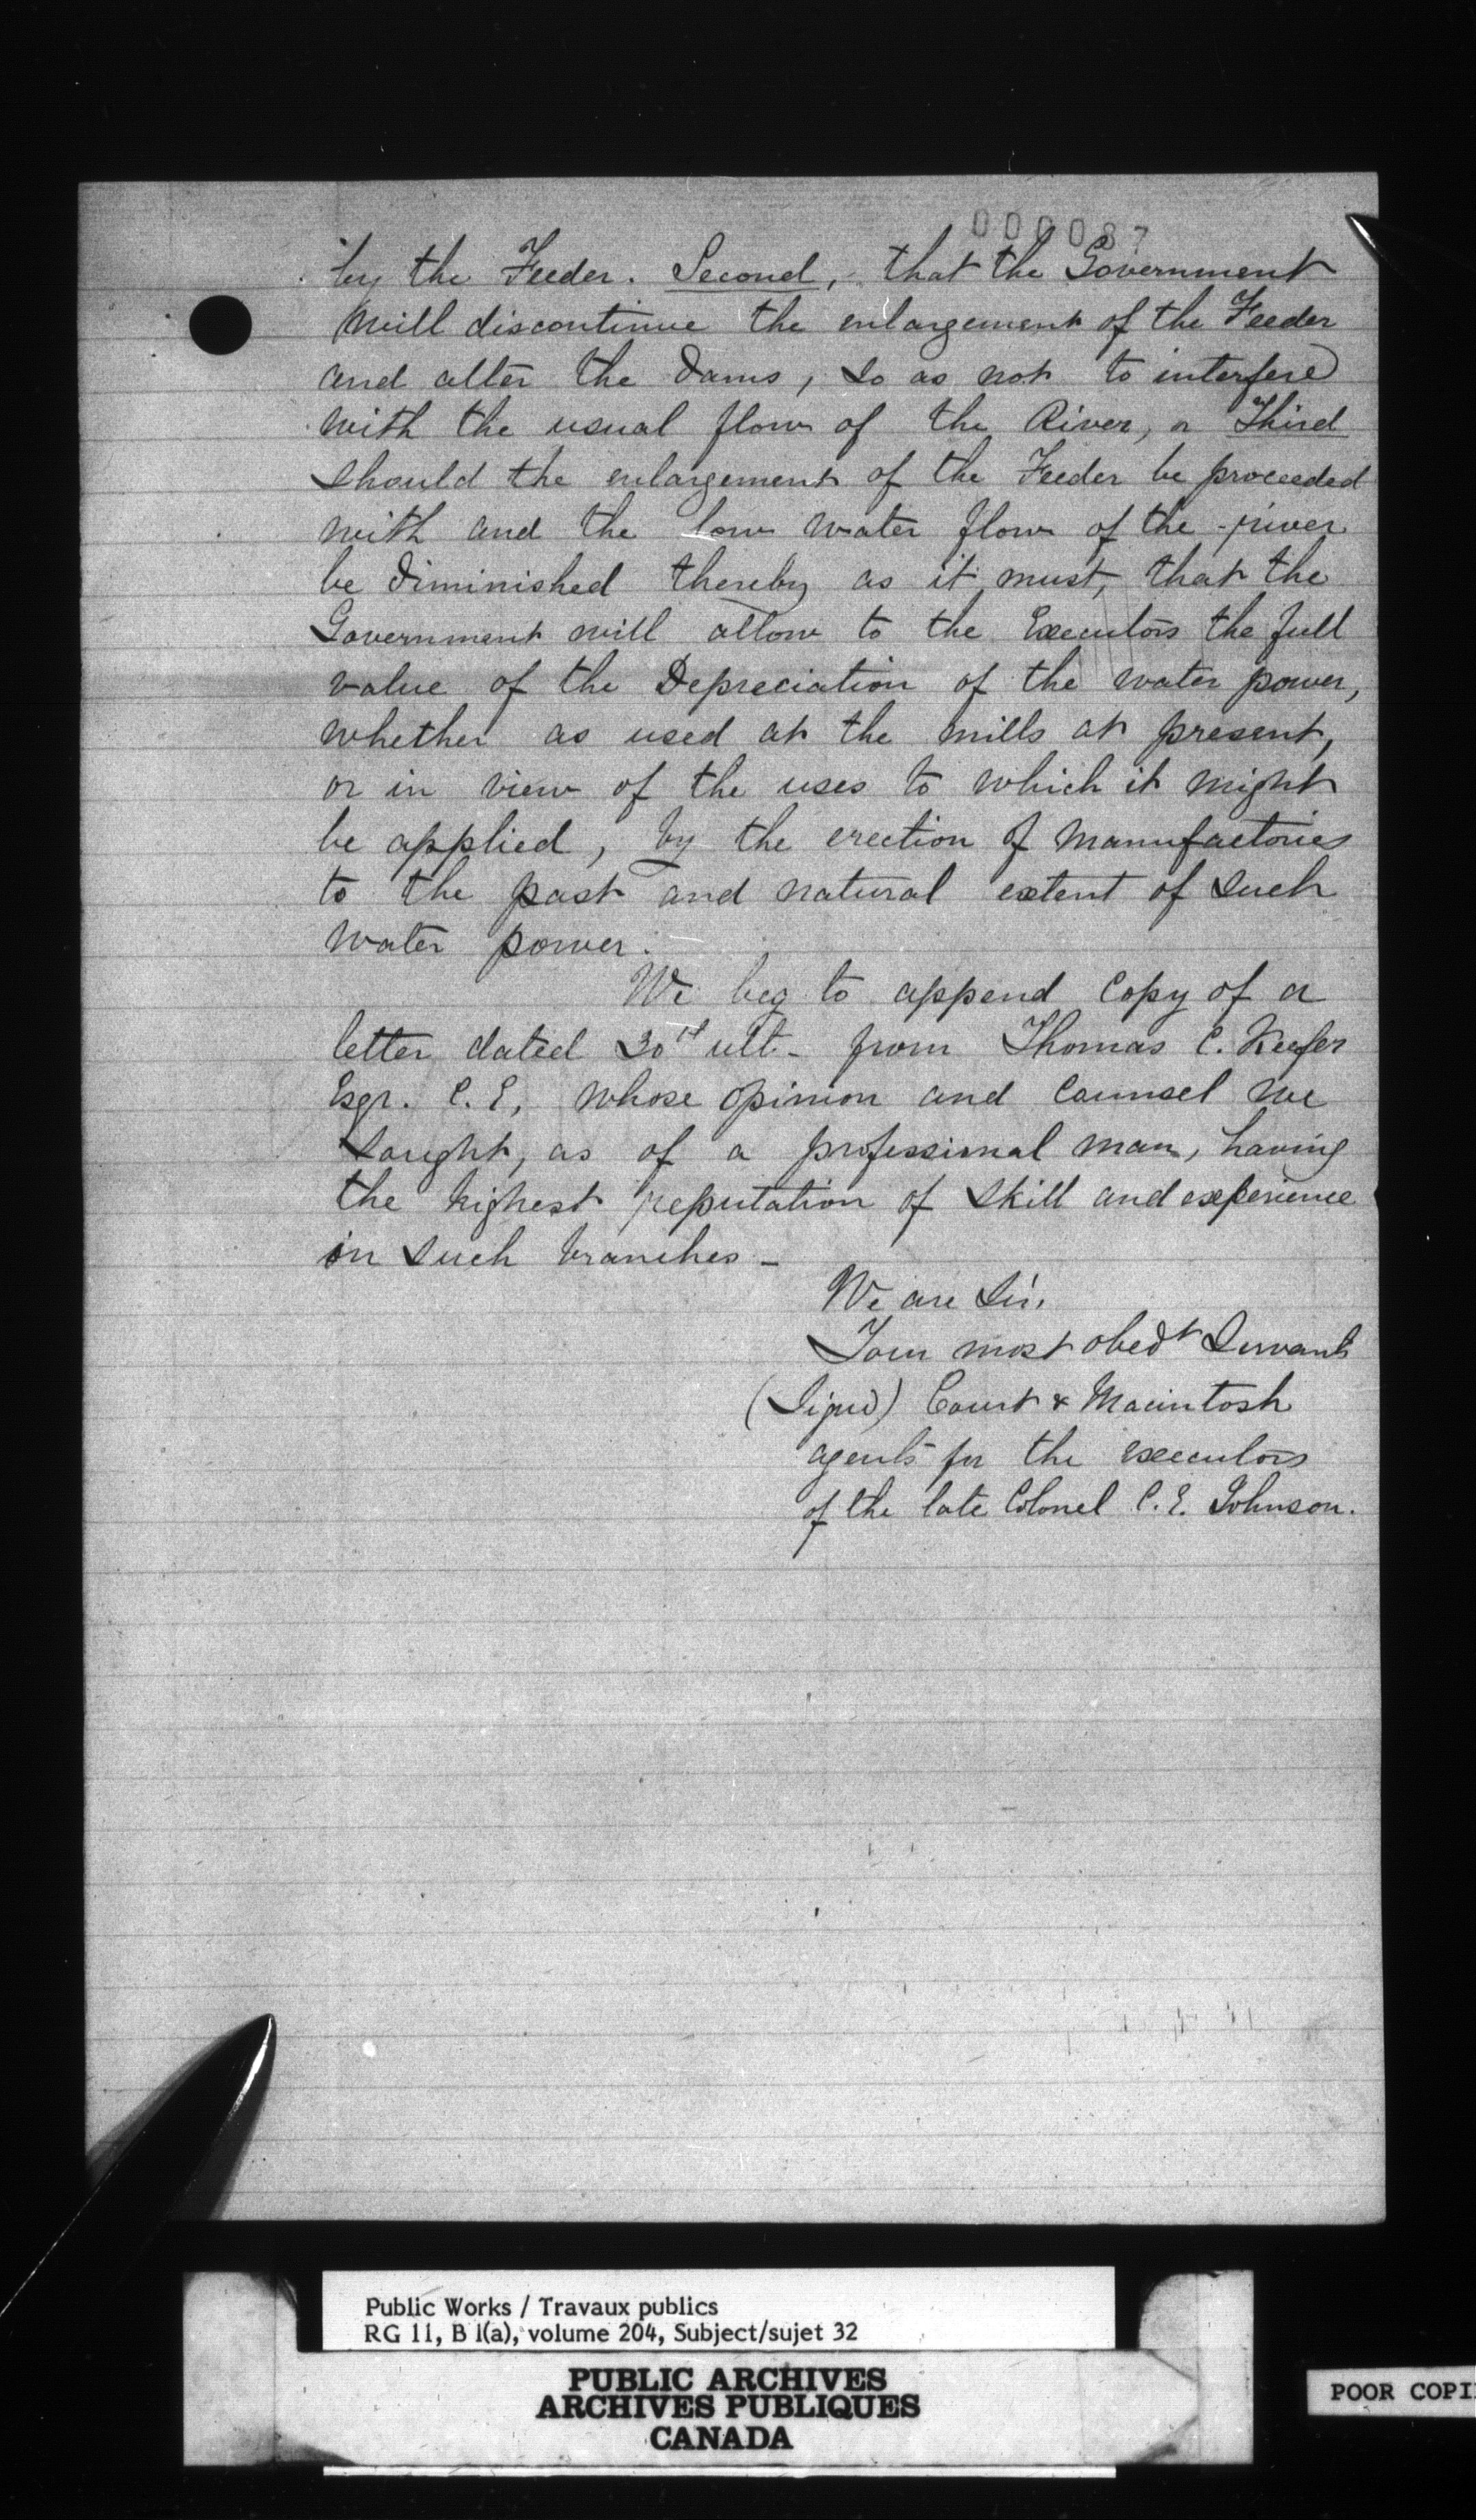 000087
by the Feeder. Second, that the Government
will discontinue the enlargement of the Feeder
and alter the dams, so as not to interfere
with the usual flow of the River, or Third
should the enlargement of the Feeder be proceeded
with and the low water flow of the river
be diminished thereby as it must, that the
Government will allow to the Executors the full
value of the Depreciation of the water power,
whether as used at the mills at present,
or in view of the uses to which it might
be applied, by the erection of Manufactories
to the past and natural extent of such
water power.
We beg to append Copy of a
letter dated 30th ult- from Thomas C. Keefer
Esqr. C. E, whose opinion and Counsel we
sought, as of a professional man, having
the highest reputation of skill and experience
in such branches -
We are Sir,
Your most obedt Servants
(Signd) Court & Macintosh
agents for the executors
of the late Colonel C. E. Johnson.
Public Works / Travaux publics
RG 11, B 1(a), volume 204, Subject/sujet 32
PUBLIC ARCHIVES
ARCHIVES PUBLIQUES
CANADA
POOR COPI